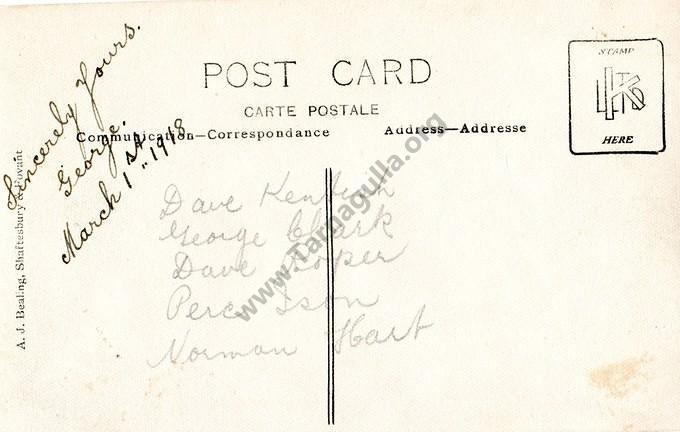 Sincerely Yours.
George.
March 1st 1918
POST CARD
CARTE POSTALE
Communication—Correspondance
Address—Addresse
STAMP
HERE
A. J. Bealing, Shaftesbury & Fovant
Dave
George Clark
Dave Soper
Perc Ison
Norman Hart
www.Tarnagulla.org